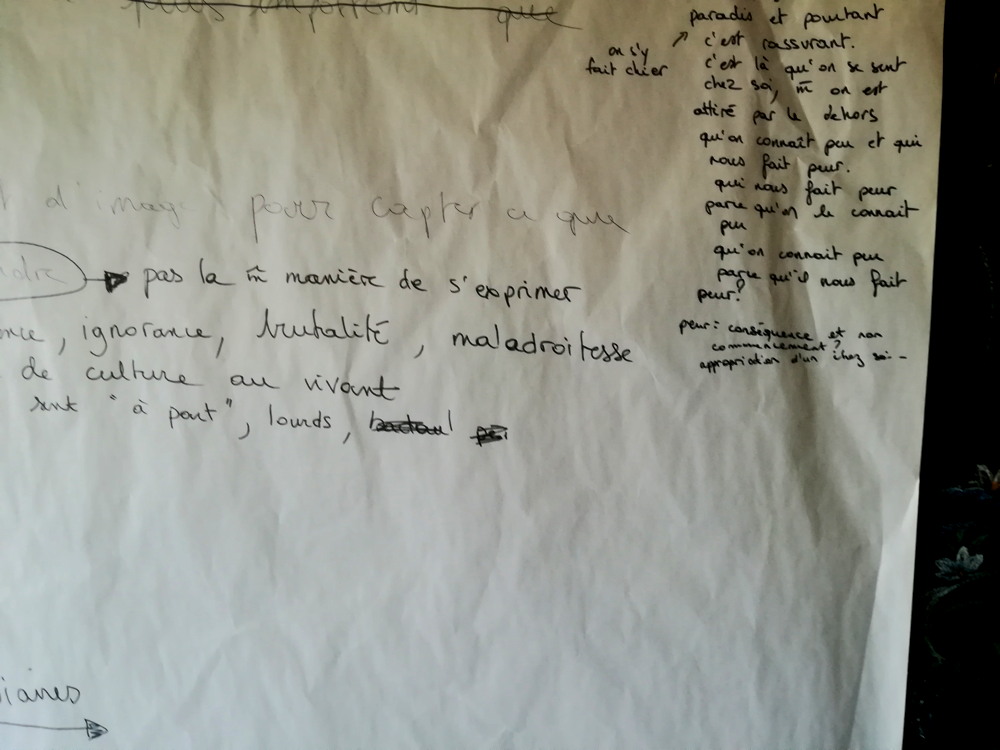 plus important que
t d'image pour capter a que
ndre → pas la m̃ manière de s'exprimer
ence, ignorance, brutalité, maladroitesse
de culture au vivant
sont "à part", lourds,
iaires
paradis et pourtant
c'est rassurant.
on s'y
fait chier
c'est là qu'on se sent
chez soi, m̃ on est
attiré par le dehors
qu'on connaît peu et qui
nous fait peur.
qui nous fait peur
parce qu'on le connait
peu
qu'on connait peu
parce qu'il nous fait
peur?
peur: conséquence et non
commencement?
appropriation d'un chez soi -